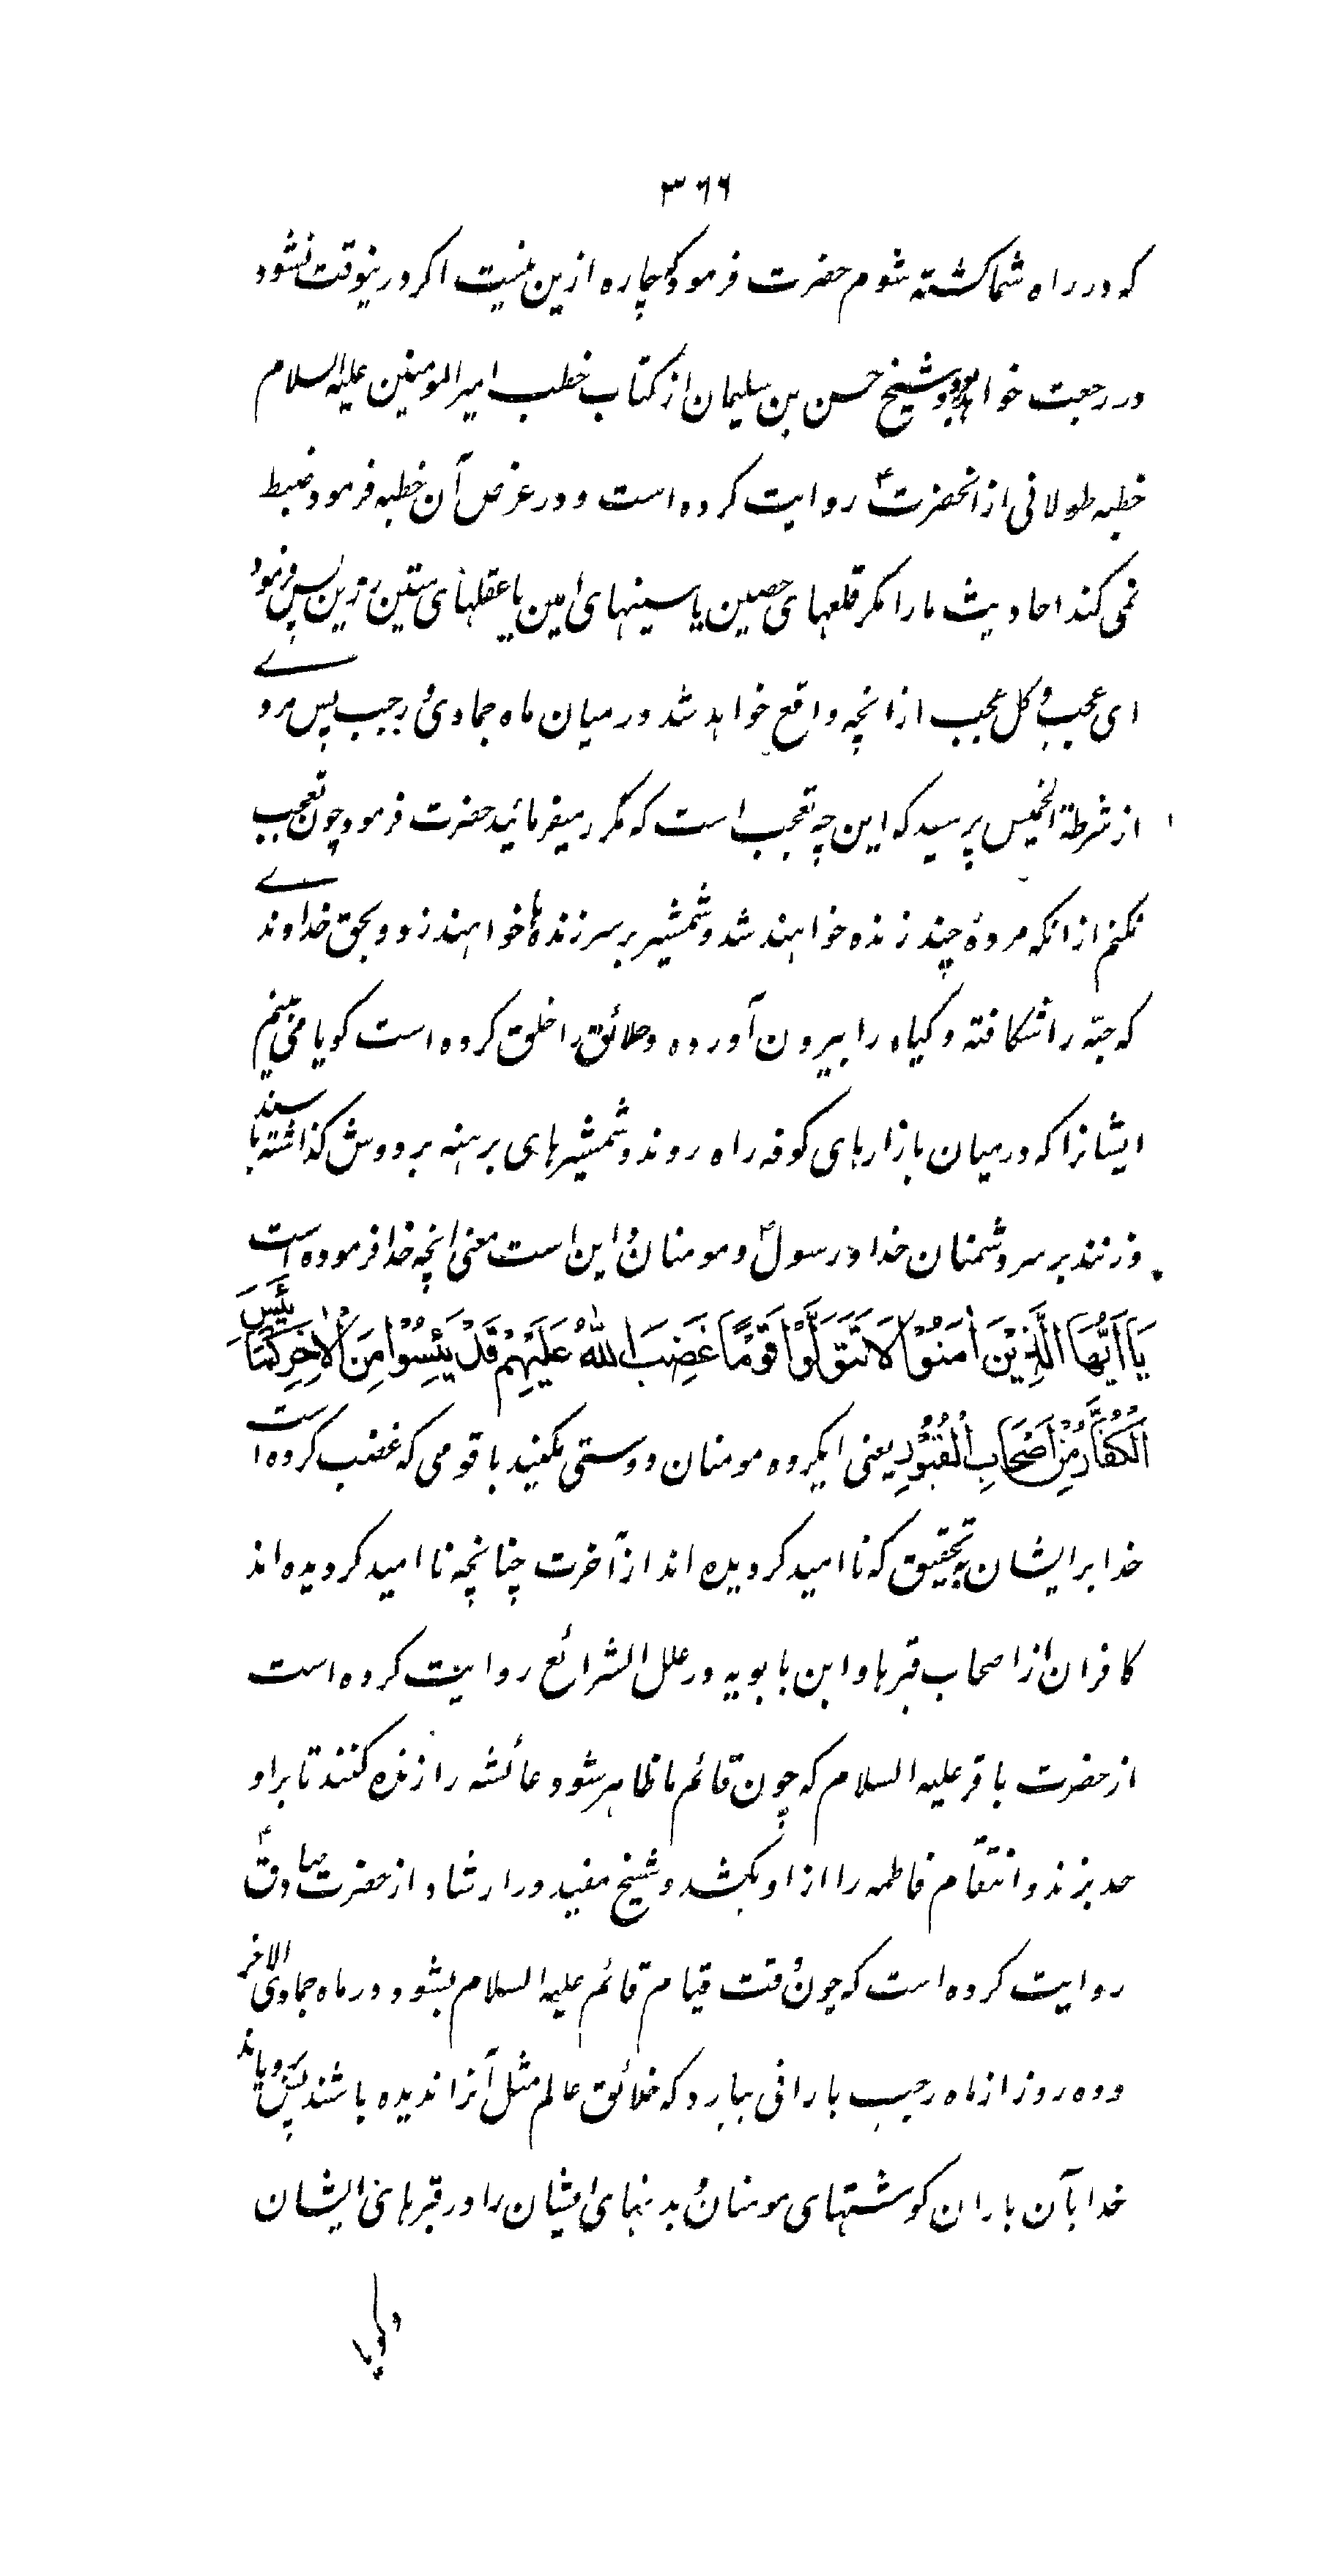 ۳۶۶
که در راه شما کشته شوم حضرت فرمود که چاره ازین نیست اگر درینوقت نشود
در رجعت خواهد بود و شیخ حسن بن سلیمان از کتاب خطب امیرالمومنین علیه السلام
خطبه طولانی از آنحضرتؑ روایت کرده است و در عرض آن خطبه فرمود ضبط
نمی کند احادیث ما را مگر قلعهای حصین یا سینهای امین یا عقلهای متین رزین پس فرمود
ای عجب و کل عجب از انچه واقع خواهد شد در میان ماه جمادی و رجب پس مردے
از شرطة الخمیس پرسید که این چه تعجب است که مکرر میفرمائید حضرت فرمود چون تعجب
نکنم از انکه مردۀ چند زنده خواهند شد و شمشیر بر سر زنده‌ها خواهند زد و بحق خداوندے
که حبّه را شکافته و گیاه را بیرون آورده و خلائق را خلق کرده است گویا می بینم
ایشانرا که در میان بازارهای کوفه راه روند و شمشیرهای برهنه بر دوش گذاشته باسند
و زنند بر سر دشمنان خدا و رسولؐ و مومنان و این است معنی انچه خدا فرموده است
يَا اَيُّهَا الَّذِيْنَ اٰمَنُوْا لَا تَتَوَلَّوْا قَوْمًا غَضِبَ اللّٰهُ عَلَيْهِمْ قَدْ يَئِسُوْا مِنَ الْاٰخِرَةِ كَمَا يَئِسَ
الْكُفَّارُ مِنْ اَصْحَابِ الْقُبُوْرِ یعنی ایگروه مومنان دوستی مکنید با قومی که غضب کرده است
خدا بر ایشان بتحقیق که نا امید گردیده اند از آخرت چنانچه نا امید گردیده اند
کافران از اصحاب قبرها و ابن بابویه در علل الشرائع روایت کرده است
از حضرت باقر علیه السلام که چون قائم ما ظاهر شود عائشه را زنده کنند تا بر او
حد بزند و انتقام فاطمه را از او بکشد و شیخ مفید در ارشاد از حضرت صادقؑ
روایت کرده است که چون وقت قیام قائم علیه السلام بشود در ماه جمادی الاخر
و ده روز از ماه رجب بارانی ببارد که خلائق عالم مثل آنرا ندیده باشند پس بروياند
خدا بآن باران گوشتهای مومنان و بدنهای ایشان را در قبرهای ایشان
و گویا